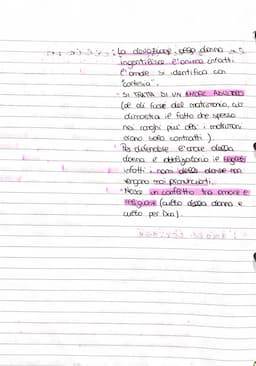 la devozione della donna
ingentilisce l'anima infatti
l'amore si identifica con
"cortesia".
• SI TRATTA DI UN AMORE ADULTERO
(al di fuori del matrimonio, ciò
dimostra il fatto che spesso
nei ranghi più alti i matrimoni
erano solo contratti).
• Per difendere l'onore della
donna è obbligatorio il segreto
infatti i nomi delle donne non
vengono mai pronunciati.
• Nasce un conflitto tra amore e
religione (culto della donna e
culto per Dio).